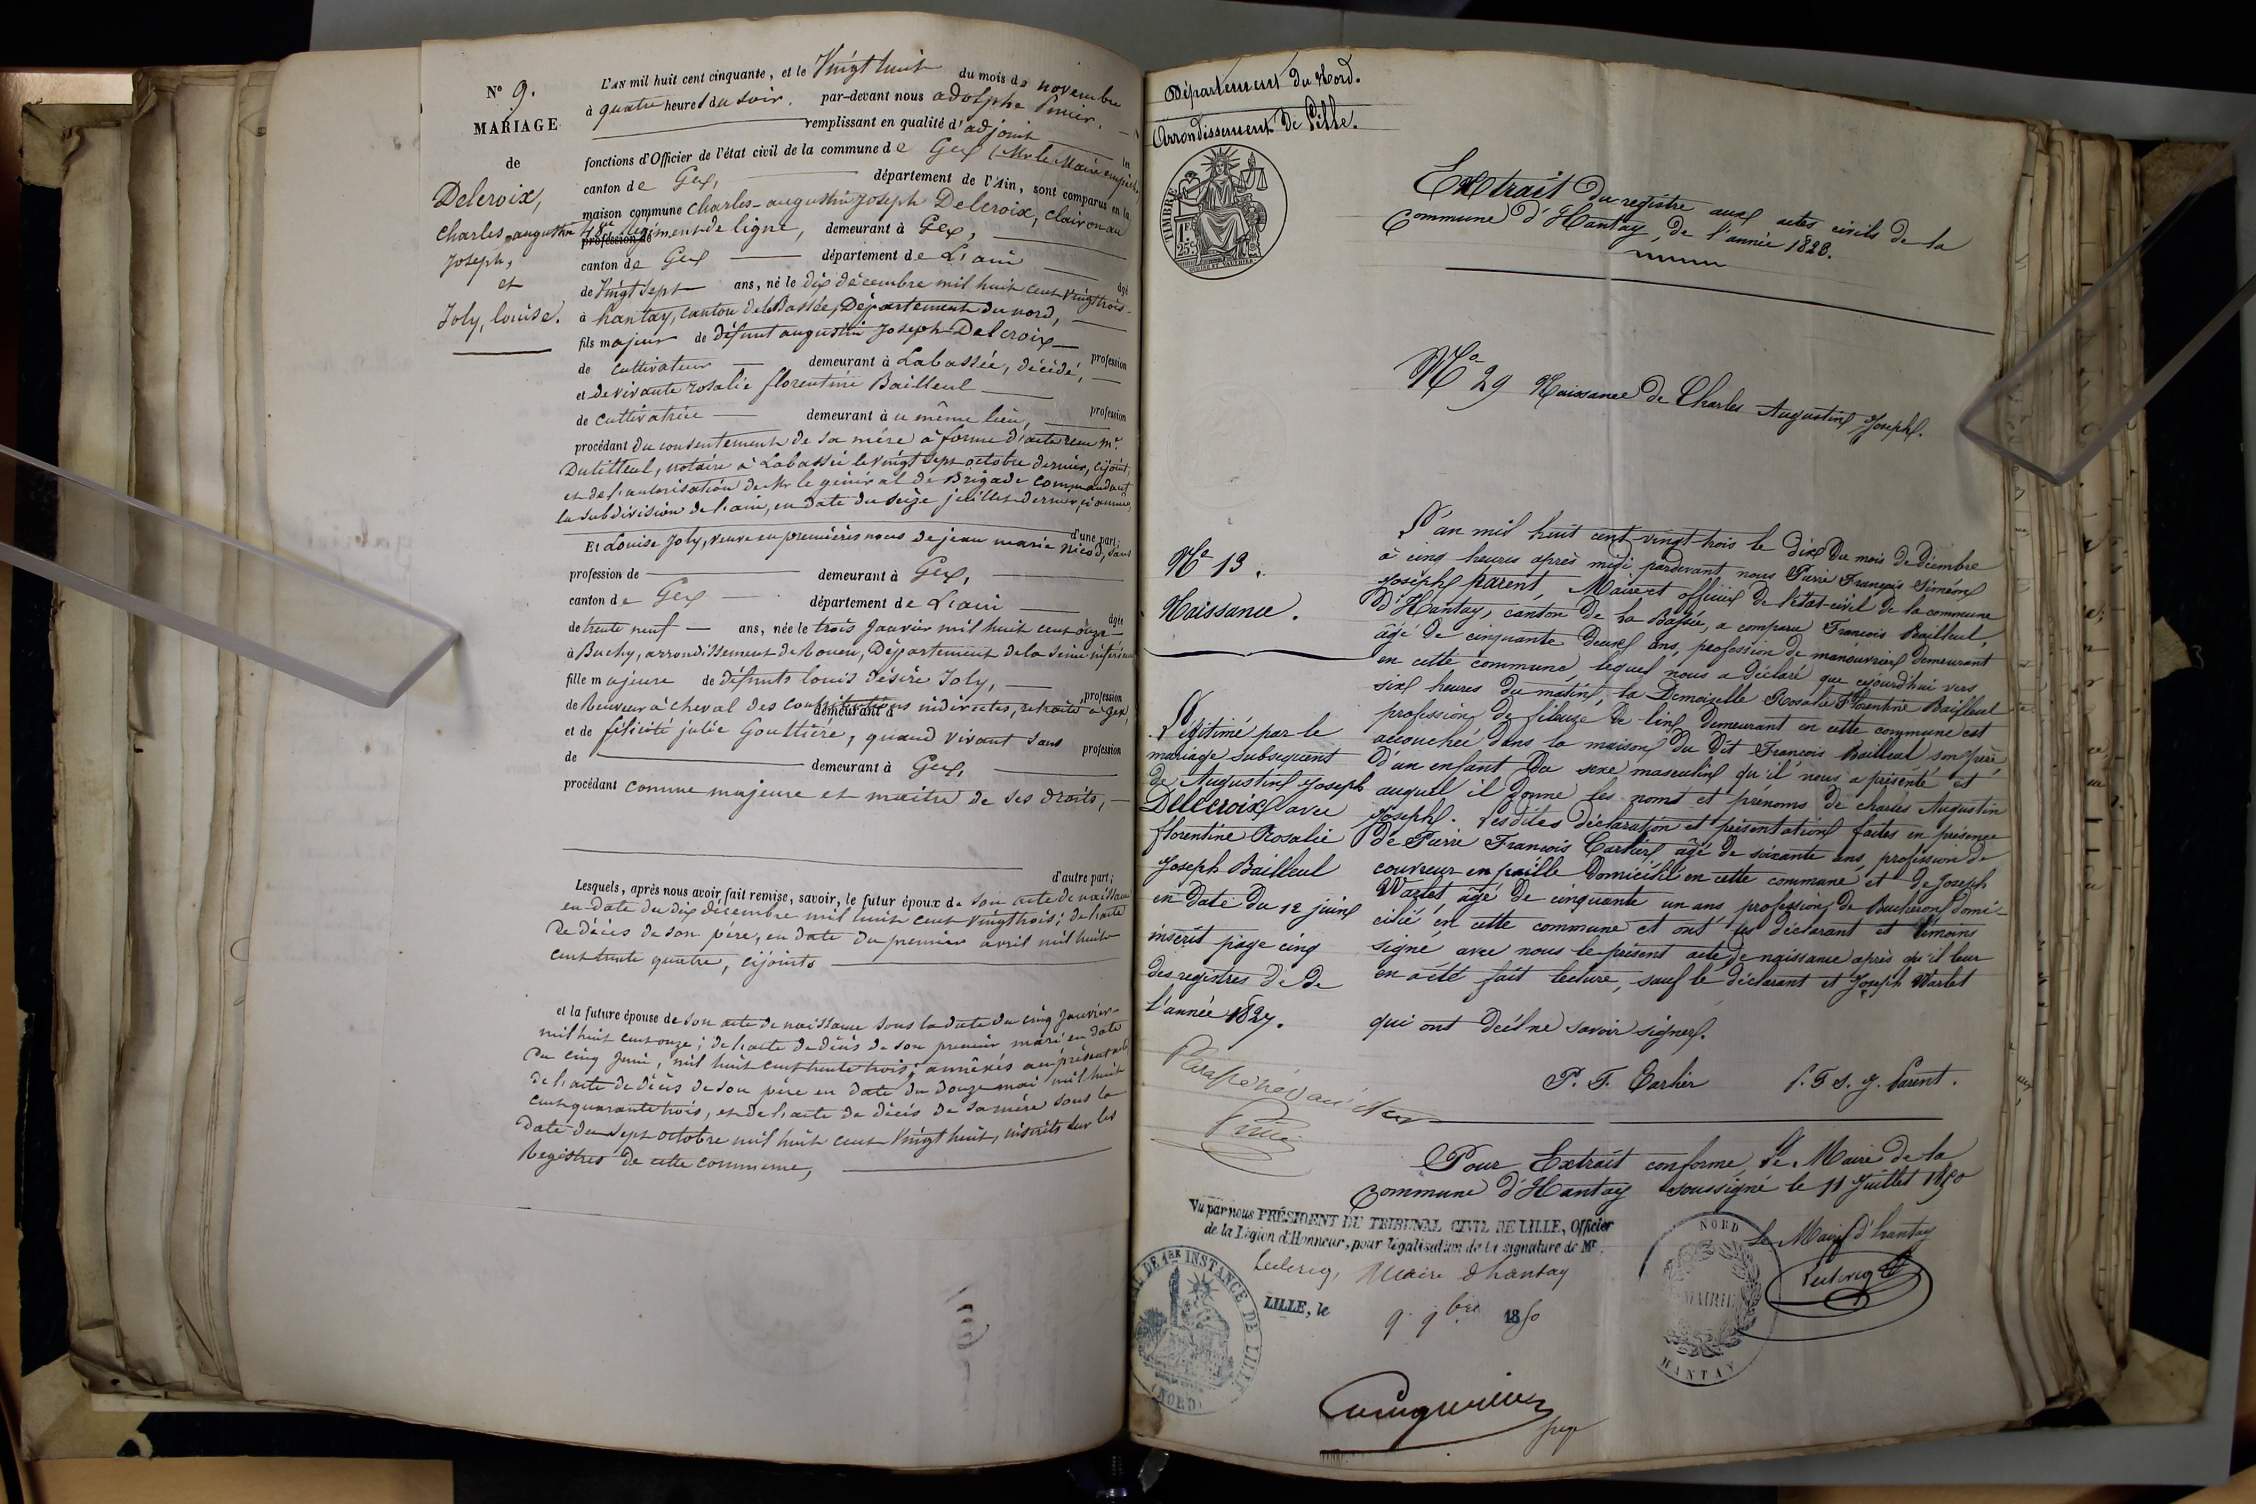 N° 9.
MARIAGE
de
Delcroix,
Charles-augustin
Joseph,
et
Joly, louise.
L'AN mil huit cent cinquante, et le Vingt huit du mois de novembre
à quatre heures du soir, par-devant nous adolphe
remplissant en qualité d'adjoint les
fonctions d'Officier de l'état civil de la commune de Gex (Mr le Maire empêché)
canton de Gex, département de l'Ain, sont comparus en la
maison commune Charles-augustin Joseph Delcroix, clairon au
profession de régiment de ligne, demeurant à Gex,
canton de Gex département de L'ain
âgé
de Vingt sept ans, né le dix décembre mil huit cent vingt trois
à hantay, canton de La Bassée, Département du nord,
fils majeur de défunt augustin Joseph Delcroix profession
de cultivateur demeurant à Labassée, décédé,
et de vivante rosalie florentine Bailleul profession
de cultivatrice demeurant à u même lieu,
procédant du consentement de sa mère à forme d'acte reçu Mr.
Dutilleul, notaire à Labassée le vingt sept octobre dernier, cijoint,
et de l'autorisation de Mr le général de Brigade commandant
la subdivision de l'ain, en date du seize juillet dernier, ci annexé,
d'une part;
Et Louise Joly, veuve en premières noces de jean marie nicod, sans
profession de demeurant à Gex,
canton de Gex département de L'ain
âgée
de trente neuf ans, née le trois Janvier mil huit cent onze
à Buchy, arrondissement de Rouen, Département de la Seine inférieure
fille majeure de défunts louis désiré Joly, profession
de Receveur à cheval des contributions indirectes, retraité à Gex,
demeurant à
et de félicité julie Gouttière, quand vivant sans profession
de demeurant à Gex,
procédant comme majeure et maitre de ses droits,
d'autre part;
Lesquels, après nous avoir fait remise, savoir, le futur époux de son acte de naissance
en date du dix décembre mil huit cent vingt trois; de l'acte
de décès de son père, en date du premier avril mil huit
cent trente quatre, cijoints
et la future épouse de son acte de naissance sous la date du cinq janvier
mil huit cent onze; de l'acte de décès de son premier mari, en date
du cinq juin, mil huit cent trente trois; annéxés au présent acte
de l'acte de décès de son père en date du douze mai mil huit
cent quarante trois, et de l'acte de décès de sa mère sous la
date du sept octobre mil huit cent vingt huit, inscrits sur les
Registres de cette commune,
Département du Nord.
Arrondissement de Lille.
TIMBRE
1F
25c
Extrait du registre aux actes civils de la
Commune d'Hantay, de l'année 1823.
N° 29 Naissance de Charles Augustin Joseph.
N° 13.
Naissance.
Légitimé par le
mariage subsequent
de Augustin Joseph
Delecroix avec
florentine Rosalie
Joseph Bailleul
en date du 12 juin
inscrit page cinq
des registres de
l'année 1827.
L'an mil huit cent vingt trois le dix du mois de Décembre
à cinq heures après midi pardevant nous Pierre François Siméon
Joseph Parent, Maire et officier de l'état-civil de la commune
d'Hantay, canton de La Bassée, a comparu François Bailleul,
âgé de cinquante deux ans, profession de manouvrier demeurant
en cette commune, lequel nous a déclaré que cejourd'hui vers
six heures du matin, la Demoiselle Rosalie Florentine Bailleul
profession de fileuse de lin demeurant en cette commune est
accouchée dans la maison du dit François Bailleul son père
d'un enfant du sexe masculin qu'il nous a présenté et
auquel il donne les noms et prénoms de charles Augustin
Joseph. Lesdites déclaration et présentation faites en présence
de Pierre François Carlier âgé de soixante ans, profession de
couvreur en paille domicilié en cette commune et de Joseph
Warlet, âgé de cinquante un ans profession de Bucheron domi-
cilié en cette commune et ont les déclarant et témoins
signé avec nous le présent acte de naissance après qu'il leur
en a été fait lecture, sauf le déclarant et Joseph Warlet
qui ont décl ne savoir signer.
P. F. Carlier P. F. S. J. Parent.
Pour Extrait conforme, Le Maire de la
Commune d'Hantay soussigné le 11 Juillet 1850
Le Maire d'hantay
Leclercq
NORD
MAIRIE
HANTAY
Vu par nous PRÉSIDENT DU TRIBUNAL CIVIL DE LILLE, Officier
de la Légion d'Honneur, pour légalisation de la signature de Mr.
Leclercq, Maire d'hantay
LILLE, le 9 9bre 1850
DE 1RE INSTANCE DE LILLE
(NORD)
juge